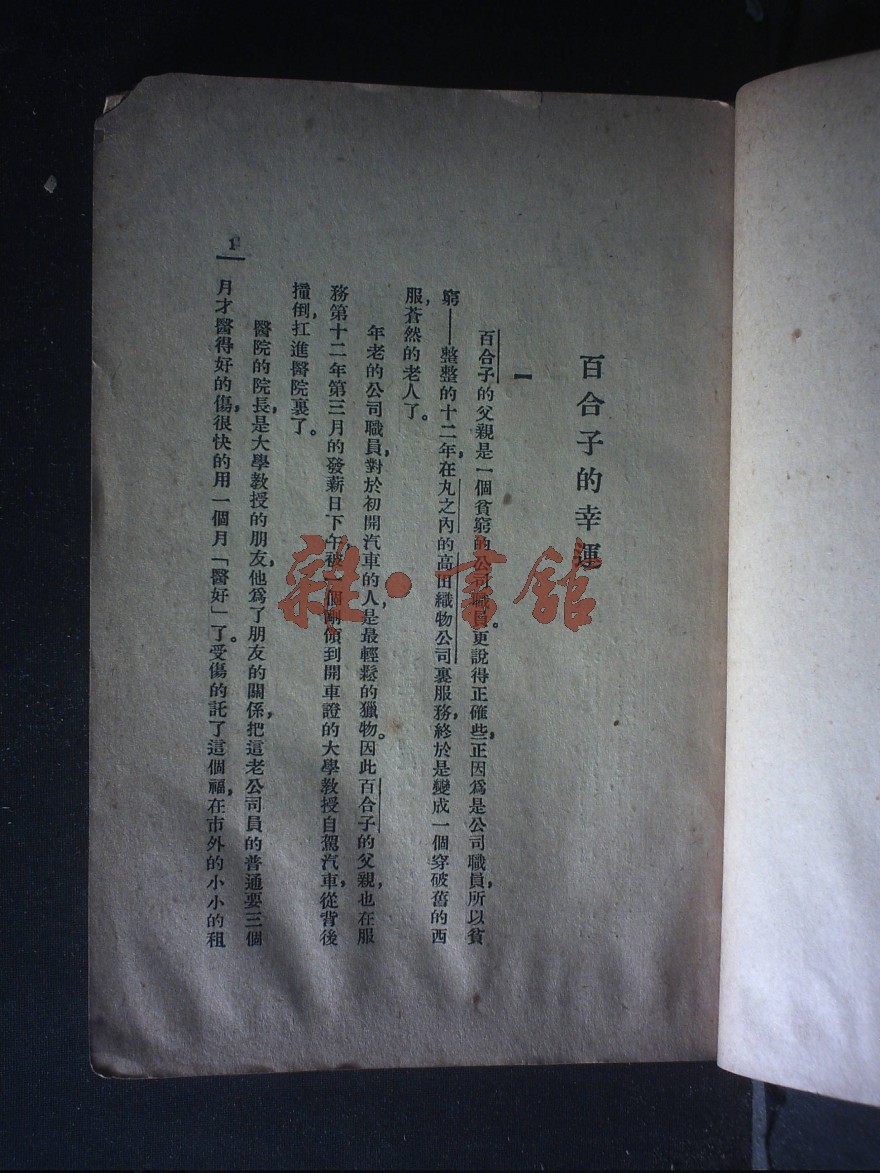 百合子的幸運
一
百合子的父親是一個貧窮的公司職員。更說得正確些,正因爲是公司職員,所以貧
窮——整整的十二年,在丸之內的高田織物公司裏服務,終於是變成一個穿破舊的西
服,蒼然的老人了。
年老的公司職員,對於初開汽車的人,是最輕鬆的獵物。因此百合子的父親,也在服
務第十二年第三月的發薪日下午,被一個剛領到開車證的大學教授自駕汽車,從背後
撞倒,扛進醫院裏了。
醫院的院長,是大學教授的朋友,他爲了朋友的關係,把這老公司員的普通要三個
月才醫得好的傷,很快的用一個月「醫好」了。受傷的託了這個福,在市外的小小的租
1
雜·書館